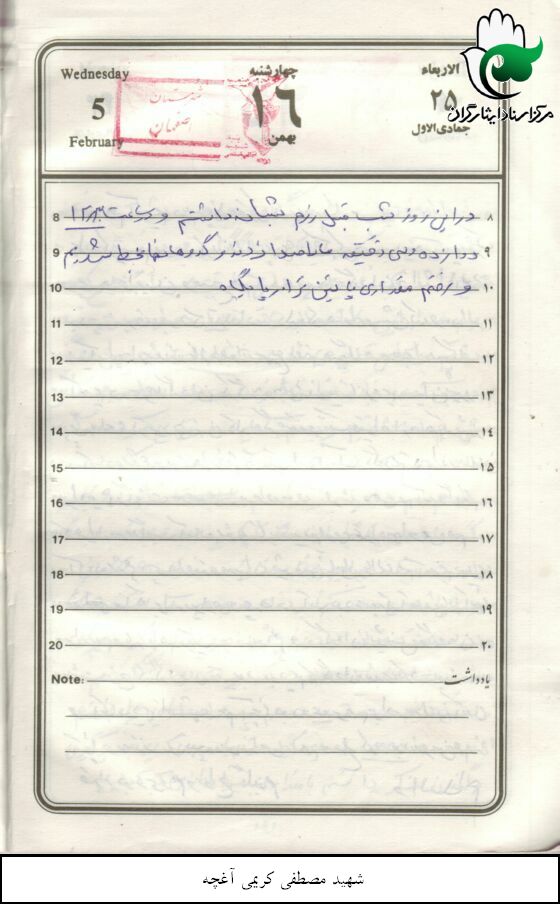 مرکز اسناد ایثارگران
Wednesday
5
February
چهارشنبه
۱۶
بهمن
الاربعاء
۲۵
جمادی الاول
اصفهان
8 در این روز شب قبل رزم شبانه داشتیم و در ساعت ۱۲/۳۰ ۸
9 دوازده وسی دقیقه ما را صدا زدند و ۹
10 و رفتیم مقداری پائین تر از پایگاه ۱۰
11 ۱۱
12 ۱۲
13 ۱۳
14 ۱٤
15 ۱۵
16 ۱۶
17 ۱۷
18 ۱۸
19 ۱۹
20 ۲۰
Note: یادداشت
شهید مصطفی کریمی آغچه